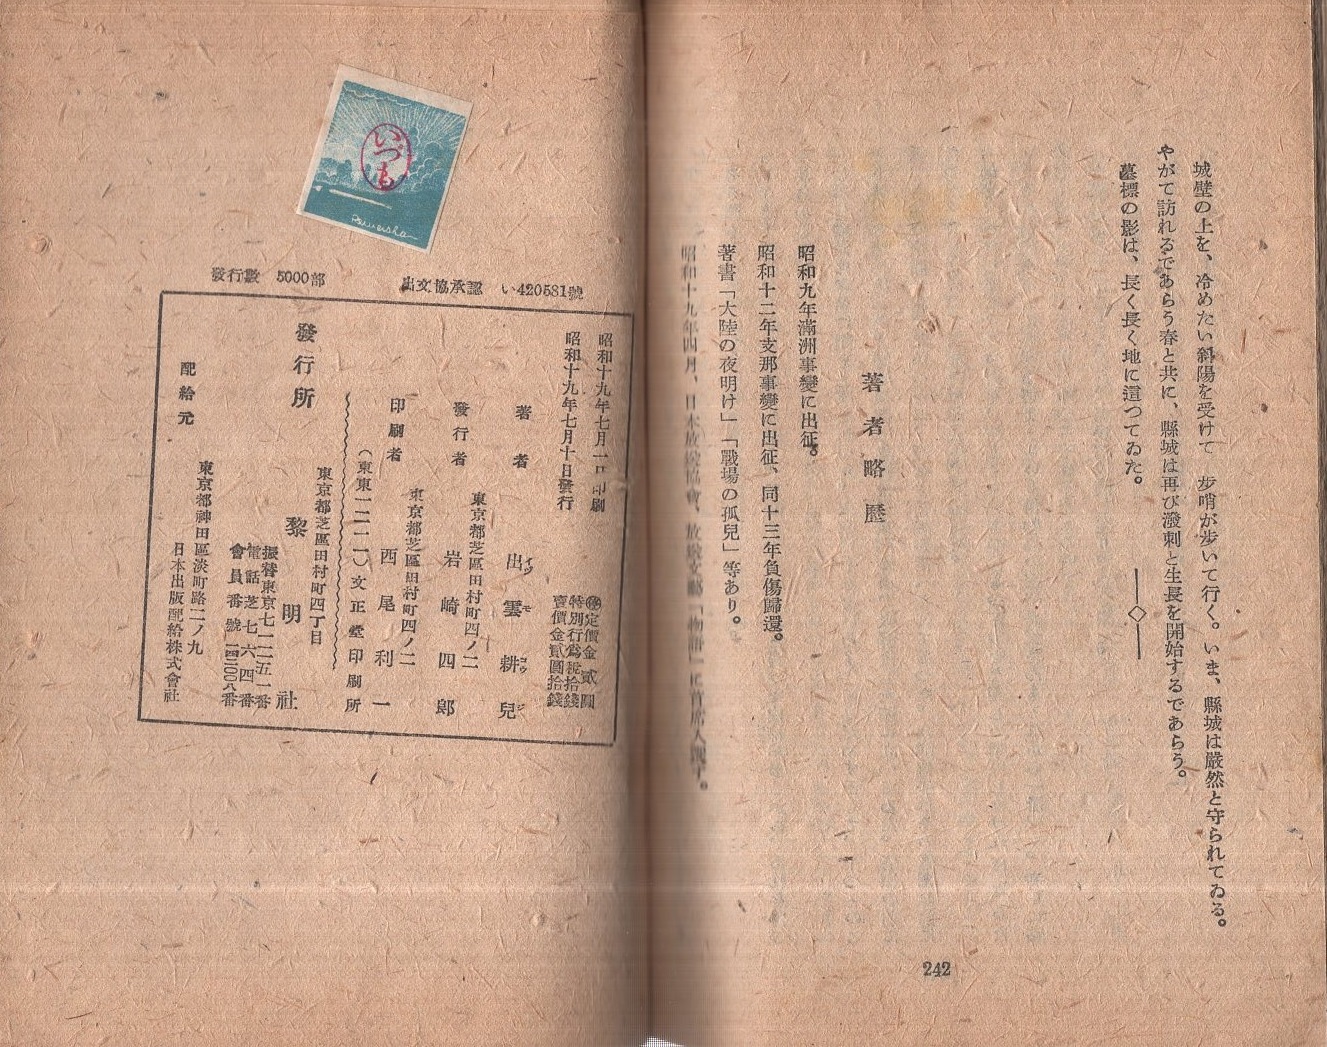 城壁の上を、冷めたい斜陽を受けて 步哨が步いて行く。いま、縣城は嚴然と守られてゐる。
やがて訪れるであらう春と共に、縣城は再び潑刺と生長を開始するであらう。
墓標の影は、長く長く地に這つてゐた。
著者略歷
昭和九年滿洲事變に出征。
昭和十二年支那事變に出征、同十三年負傷歸還。
著書「大陸の夜明け」「戰場の孤兒」等あり。
昭和十九年四月、日本放送協會、放送文藝「物語」に首席入選
242
いづも
出文協承認 い420581號
發行數 5000部
昭和十九年七月一日印刷
昭和十九年七月十日發行
定價金貳圓
特別行爲稅拾錢
賣價金貳圓拾錢
著者 出雲耕兒
イヅモ コウジ
東京都芝區田村町四ノ二
發行者 岩崎四郎
東京都芝區田村町四ノ二
印刷者 西尾利一
(東東一二一一)文正堂印刷所
東京都芝區田村町四丁目
發行所 黎明社
振替東京七一二五一番
電話芝七六四番
會員番號
東京都神田區淡町路二ノ九
配給元 日本出版配給株式會社